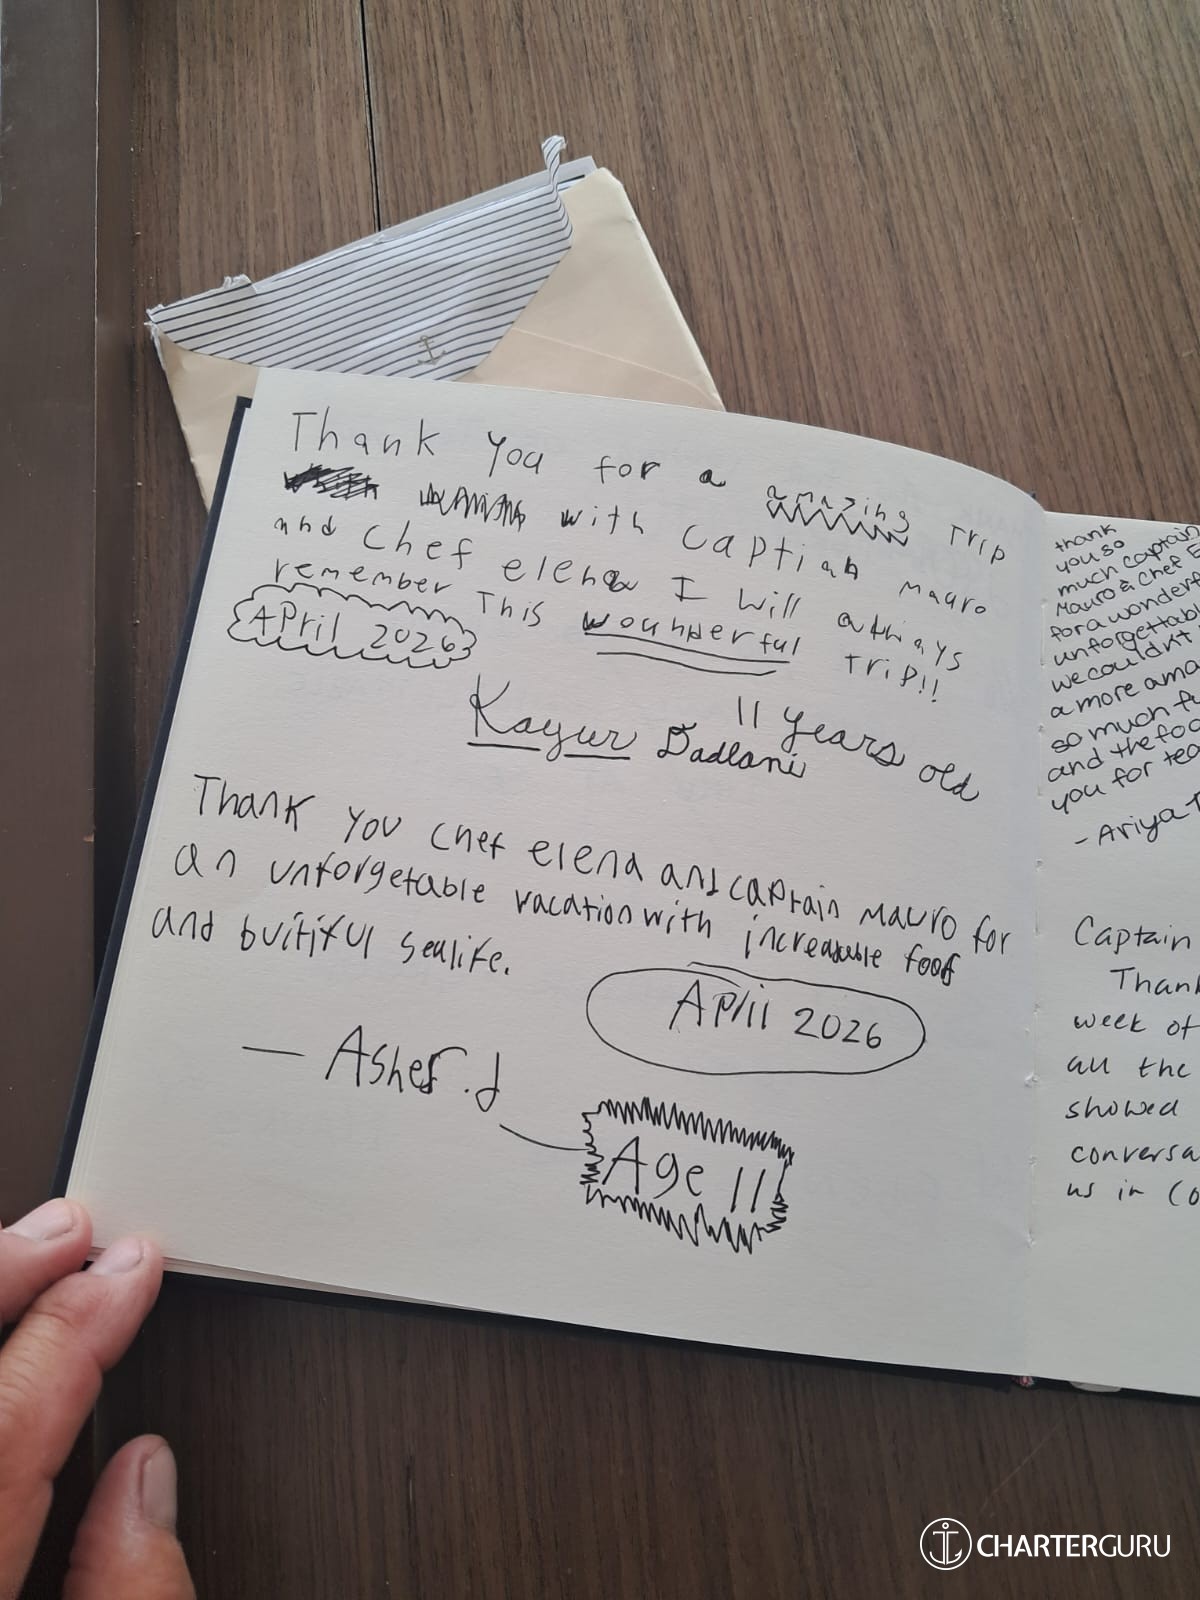 Thank you for a amazing Trip
with Captian Mauro
and Chef elena I will always
remember This wounderful Trip!!
April 2026
11 years old
Kayur Dadlani
Thank you chef elena and captain Mauro for
an unforgetable vacation with increadable food
and buitiful sealife.
April 2026
— Asher.d
Age 11
thank
you so
much captain
Mauro & Chef E
for a wonderf
unforgettabl
we couldn't
a more ama
so much fu
and the foo
you for tea
- Ariya
Captain
Thank
week of
all the
showed
conversa
us in Co
CHARTERGURU